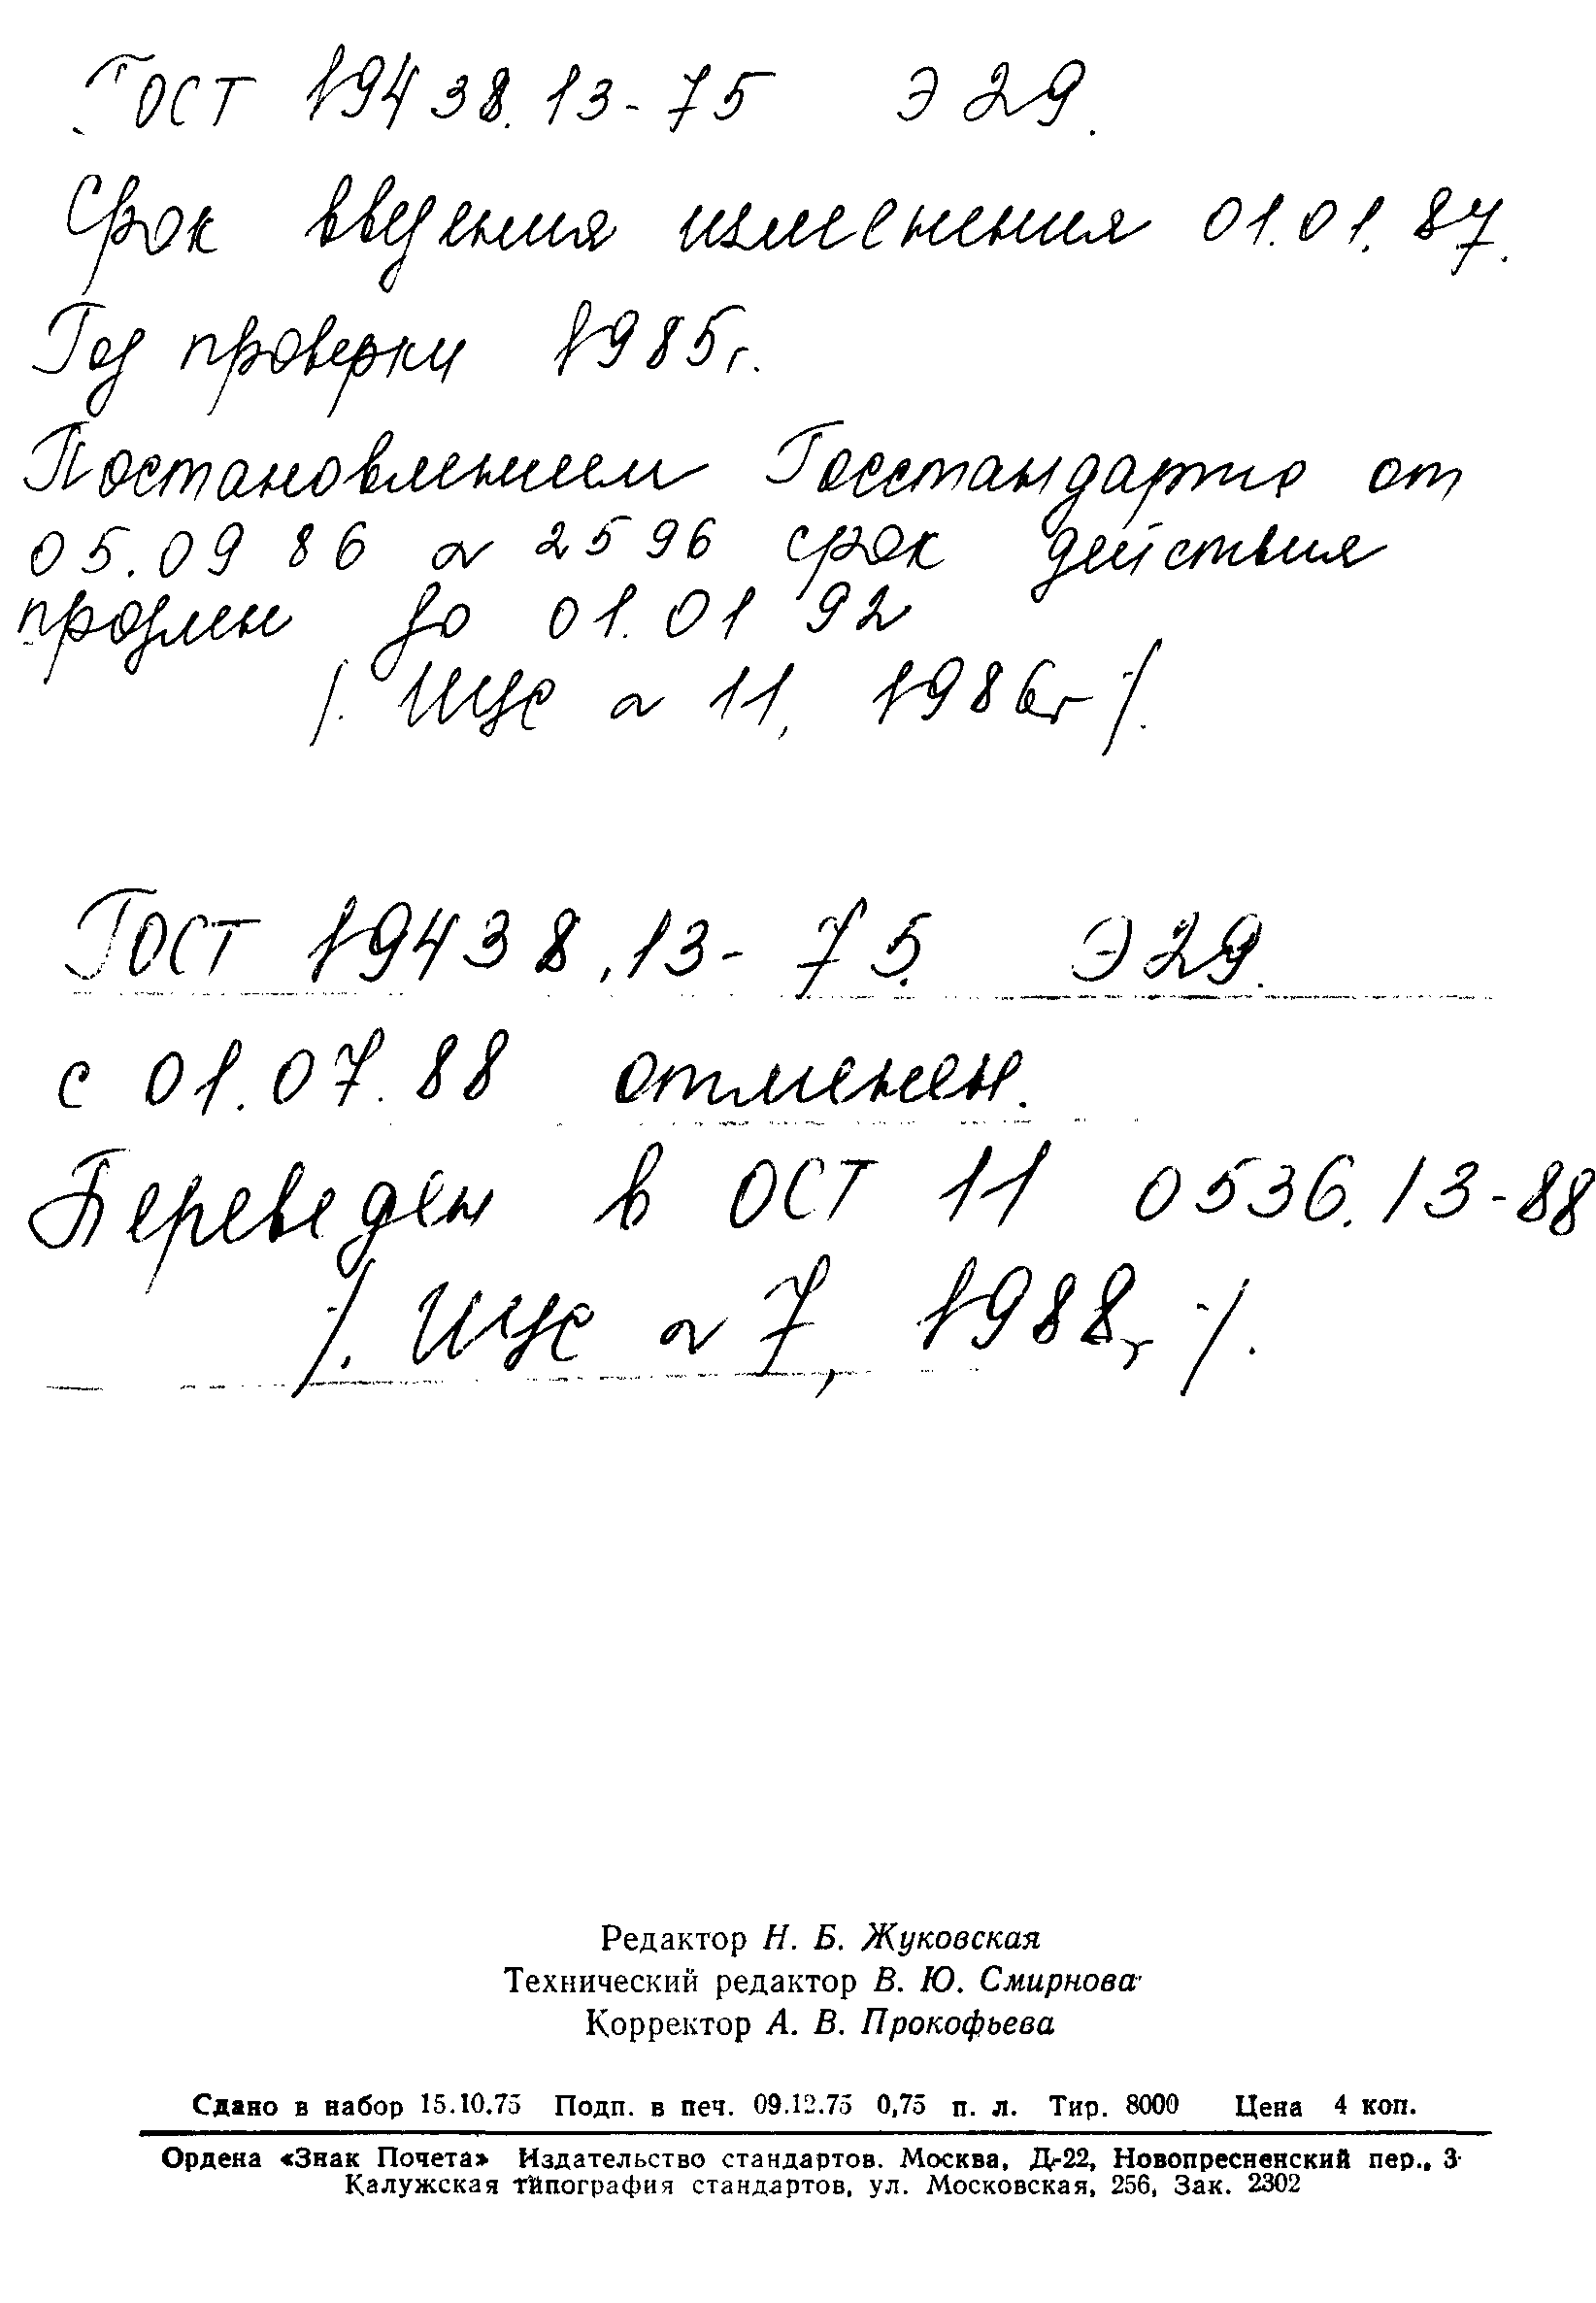 ГОСТ 19438.13-75 Э29.
Срок введения изменения 01.01.87.
Год проверки 1985г.
Постановлением Госстандарта от
05.09 86 № 2596 срок действия
продлен до 01.01 92
/. ИУС № 11, 1986г /.
ГОСТ 19438.13-75. Э29.
с 01.07.88 отменен.
Переведен в ОСТ 11 0536.13-88
/. ИУС № 7, 1988г /.
Редактор Н. Б. Жуковская
Технический редактор В. Ю. Смирнова
Корректор А. В. Прокофьева
Сдано в набор 15.10.75 Подп. в печ. 09.12.75 0,75 п. л. Тир. 8000 Цена 4 коп.
Ордена «Знак Почета» Издательство стандартов. Москва, Д-22, Новопресненский пер., 3
Калужская типография стандартов, ул. Московская, 256, Зак. 2302